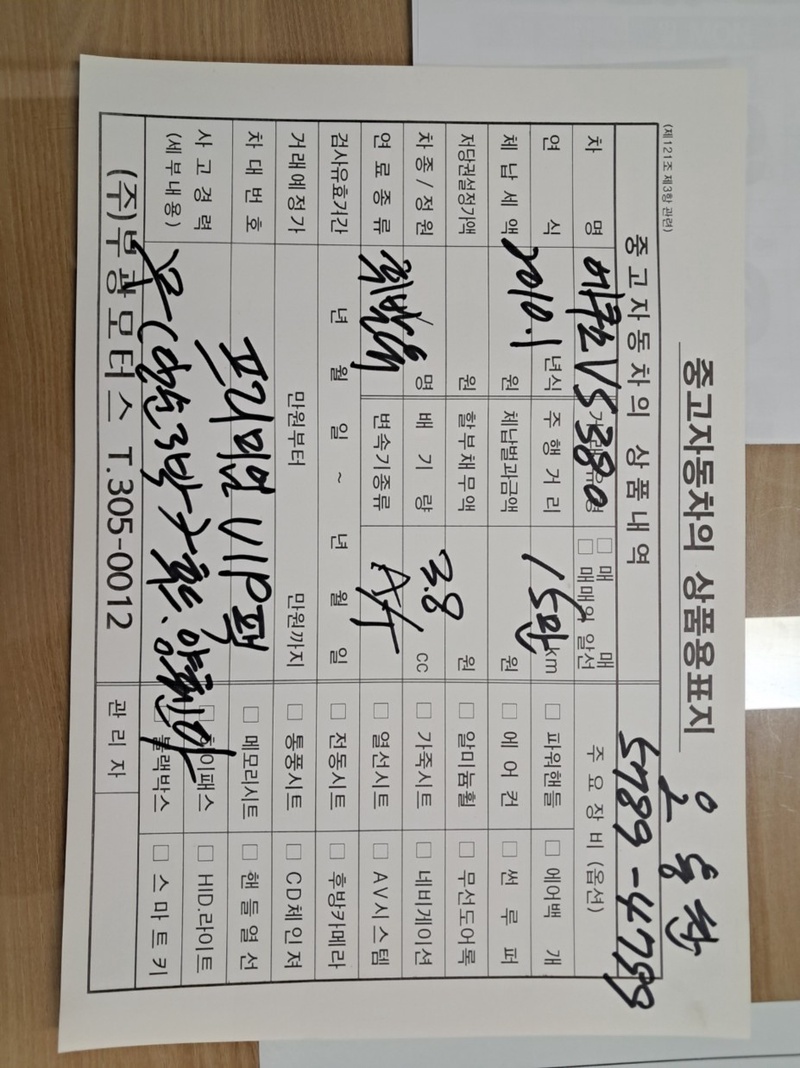 중고자동차의 상품용표지
(제 121조 제3항 관련)
5789-4799
중고자동차의 상품내역
주요장비(옵션)
차 명 에쿠스 VS380 매 매 매매의 알선
연 식 2010.1 년식 주행거리 15만 km
체납세액 원 체납범과금액 원
저당권설정가액 원 할부채무액 원
차종/정원 명 배기량 3.8 cc
연료종류 휘발유 변속기종류 A/T
검사유효기간 년 월 일 ~ 년 월 일
거래예정가 만원부터 만원까지
차대번호 프리미엄 VIP팩
사고경력 (세부내용)
파워핸들 에어백 개
에어컨 썬루프
알미늄휠 무선도어록
가죽시트 네비게이션
열선시트 AV시스템
전동시트 후방카메라
통풍시트 CD체인져
메모리시트 핸들열선
하이패스 HID.라이트
블랙박스 스마트키
(주)부광모터스 T.305-0012 관리자